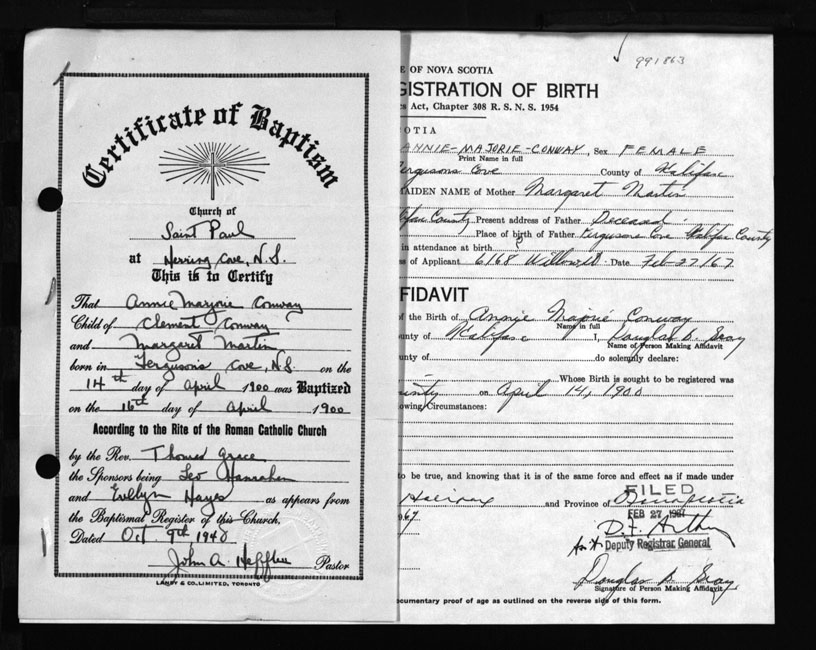 Certificate of Baptism
Church of
Saint Paul
at Herring Cove, N.S.
This is to Certify
That Annie Marjorie Conway
Child of Clement Conway
and Margaret Martin
born in Fergusons Cove, N.S. on the
14th day of April 1900 was Baptized
on the 16th day of April 1900
According to the Rite of the Roman Catholic Church
by the Rev. Thomas Grace
the Sponsors being Leo Hanrahan
and Evelyn Hayes as appears from
the Baptismal Register of this Church.
Dated Oct 9th 1940
John A. Pastor
LANDY & CO., LIMITED, TORONTO
991863
E OF NOVA SCOTIA
GISTRATION OF BIRTH
cs Act, Chapter 308 R. S. N. S. 1954
COTIA
ANNIE-MAJORIE-CONWAY, Sex FEMALE
Print Name in full
Fergusons Cove County of Halifax
MAIDEN NAME of Mother Margaret Martin
lifax County Present address of Father Deceased
Place of birth of Father Fergusons Cove Halifax County
in attendance at birth
ss of Applicant 6168 Willow St. Date Feb-27/67
FFIDAVIT
of the Birth of Annie Majorie Conway
Name in full
ounty of Halifax I, Douglas D. Gray
Name of Person Making Affidavit
ounty of do solemnly declare:
Whose Birth is sought to be registered was
unty on April 14, 1900
lowing Circumstances:
to be true, and knowing that it is of the same force and effect as if made under
Halifax and Province of Nova Scotia
FILED
FEB 27 1967
967
D.F. Arthur
Deputy Registrar General
Douglas D. Gray
Signature of Person Making Affidavit
ocumentary proof of age as outlined on the reverse side of this form.